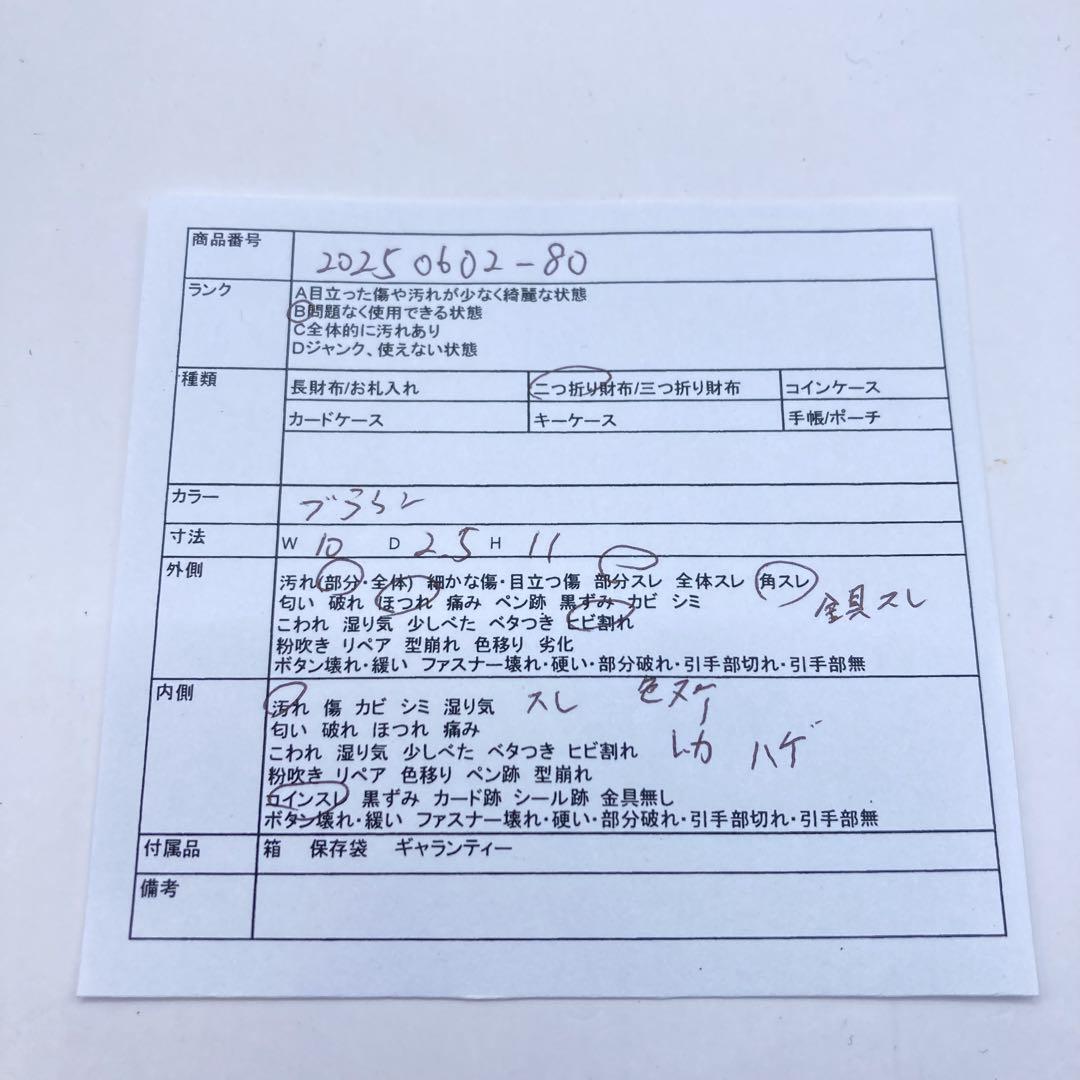 商品番号 20250602-80
ランク A目立った傷や汚れが少なく綺麗な状態
B問題なく使用できる状態
C全体的に汚れあり
Dジャンク、使えない状態
種類 長財布/お札入れ 二つ折り財布/三つ折り財布 コインケース
カードケース キーケース 手帳/ポーチ
カラー ブラウン
寸法 W 10 D 2.5 H 11
外側 汚れ(部分・全体) 細かな傷・目立つ傷 部分スレ 全体スレ 角スレ
匂い 破れ ほつれ 痛み ペン跡 黒ずみ カビ シミ 金具スレ
こわれ 湿り気 少しべた ベタつき ヒビ割れ
粉吹き リペア 型崩れ 色移り 劣化
ボタン壊れ・緩い ファスナー壊れ・硬い・部分破れ・引手部切れ・引手部無
内側 汚れ 傷 カビ シミ 湿り気 スレ 色ヌケ
匂い 破れ ほつれ 痛み
こわれ 湿り気 少しべた ベタつき ヒビ割れ ハゲ
粉吹き リペア 色移り ペン跡 型崩れ
コインスレ 黒ずみ カード跡 シール跡 金具無し
ボタン壊れ・緩い ファスナー壊れ・硬い・部分破れ・引手部切れ・引手部無
付属品 箱 保存袋 ギャランティー
備考